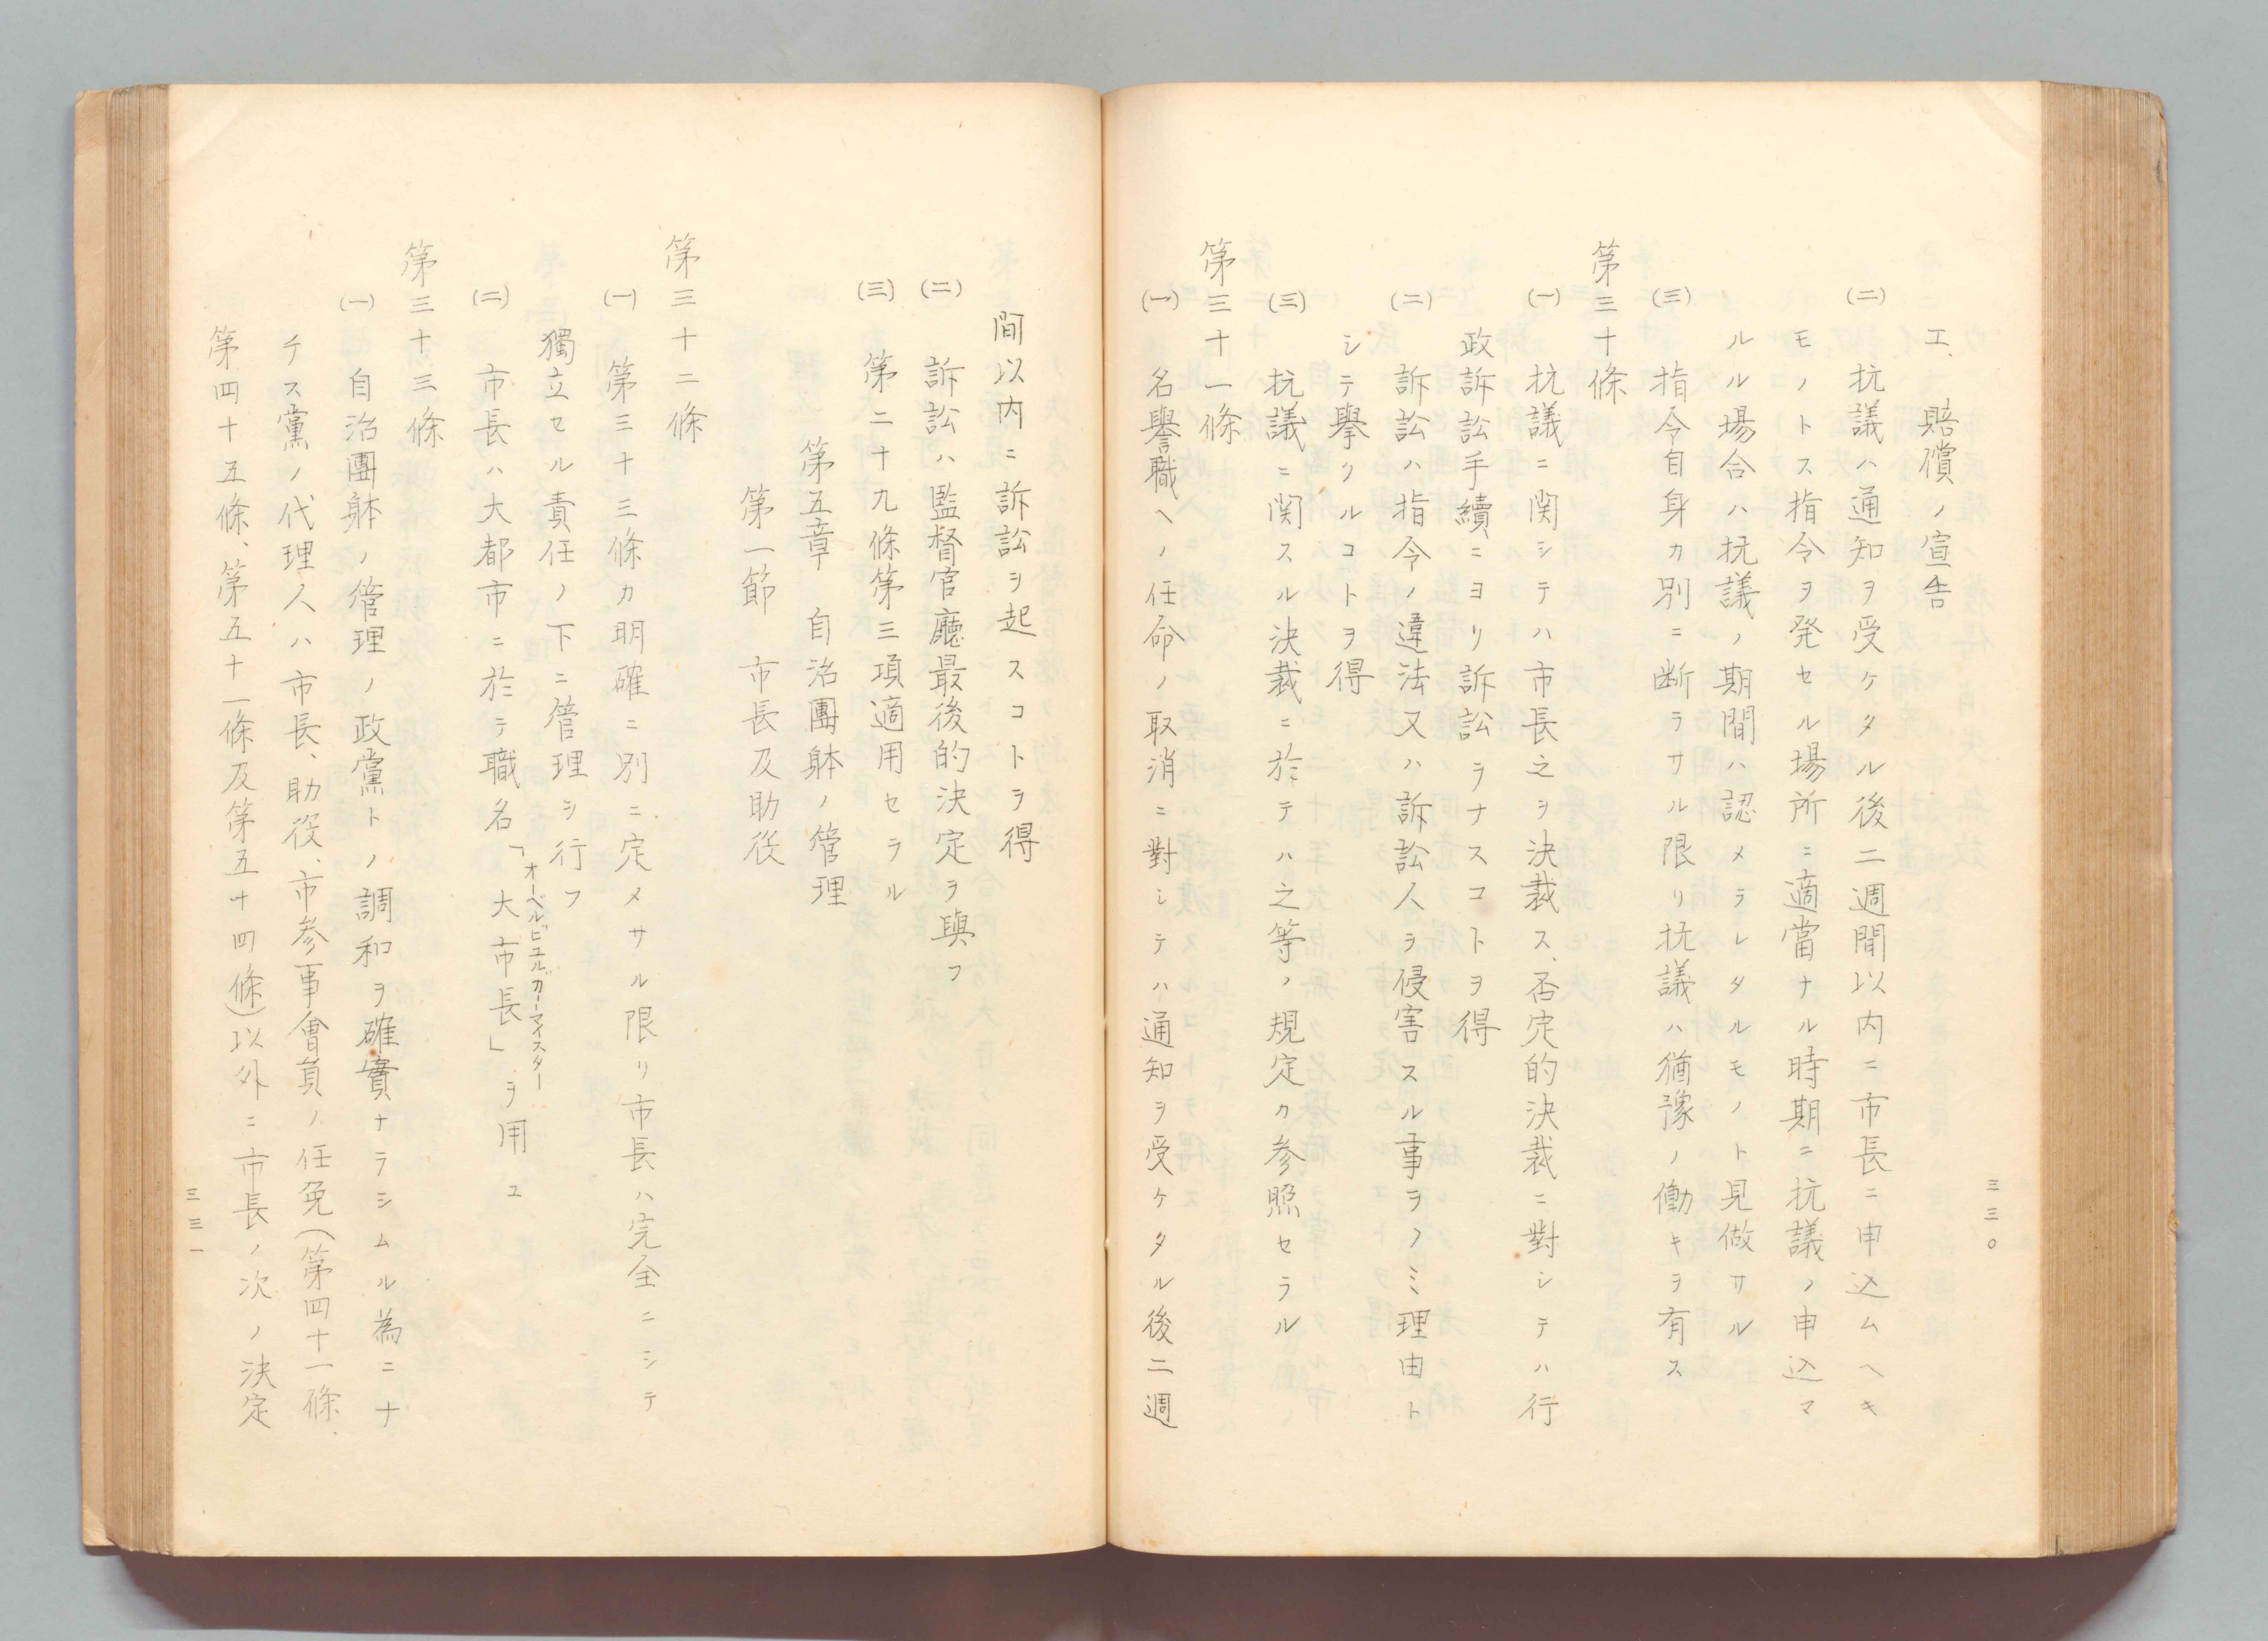 三三〇
エ、賠償ノ宣告
(二) 抗議ハ通知ヲ受ケタル後二週間以内ニ市長ニ申込ムヘキ
モノトス指令ヲ発セル場所ニ適當ナル時期ニ抗議ノ申込マ
ルル場合ハ抗議ノ期間ハ認メラレタルモノト見做サル
(三) 指令自身カ別ニ断ラサル限リ抗議ハ猶豫ノ働キヲ有ス
第三十條
(一) 抗議ニ関シテハ市長之ヲ決裁ス、否定的決裁ニ對シテハ行
政訴訟手續ニヨリ訴訟ヲナスコトヲ得
(二) 訴訟ハ指令ノ違法又ハ訴訟人ヲ侵害スル事ヲノミ理由ト
シテ擧クルコトヲ得
(三) 抗議ニ関スル決裁ニ於テハ之等ノ規定カ参照セラル
第三十一條
(一) 名譽職ヘノ任命ノ取消ニ對シテハ通知ヲ受ケタル後二週
間以内ニ訴訟ヲ起スコトヲ得
(二) 訴訟ハ監督官廳最後的決定ヲ與フ
(三) 第二十九條第三項適用セラル
第五章 自治團躰ノ管理
第一節 市長及助役
第三十二條
(一) 第三十三條カ明確ニ別ニ定メサル限リ市長ハ完全ニシテ
獨立セル責任ノ下ニ管理シ行フ
(二) 市長ハ大都市ニ於テ職名「大市長」ヲ用ユ
オーベルビュルガーマイスター
第三十三條
(一) 自治團躰ノ管理ノ政黨トノ調和ヲ確實ナラシムル為ニナ
チス黨ノ代理人ハ市長、助役、市参事會員ノ任免(第四十一條、
第四十五條、第五十一條及第五十四條)以外ニ市長ノ次ノ決定
三三一